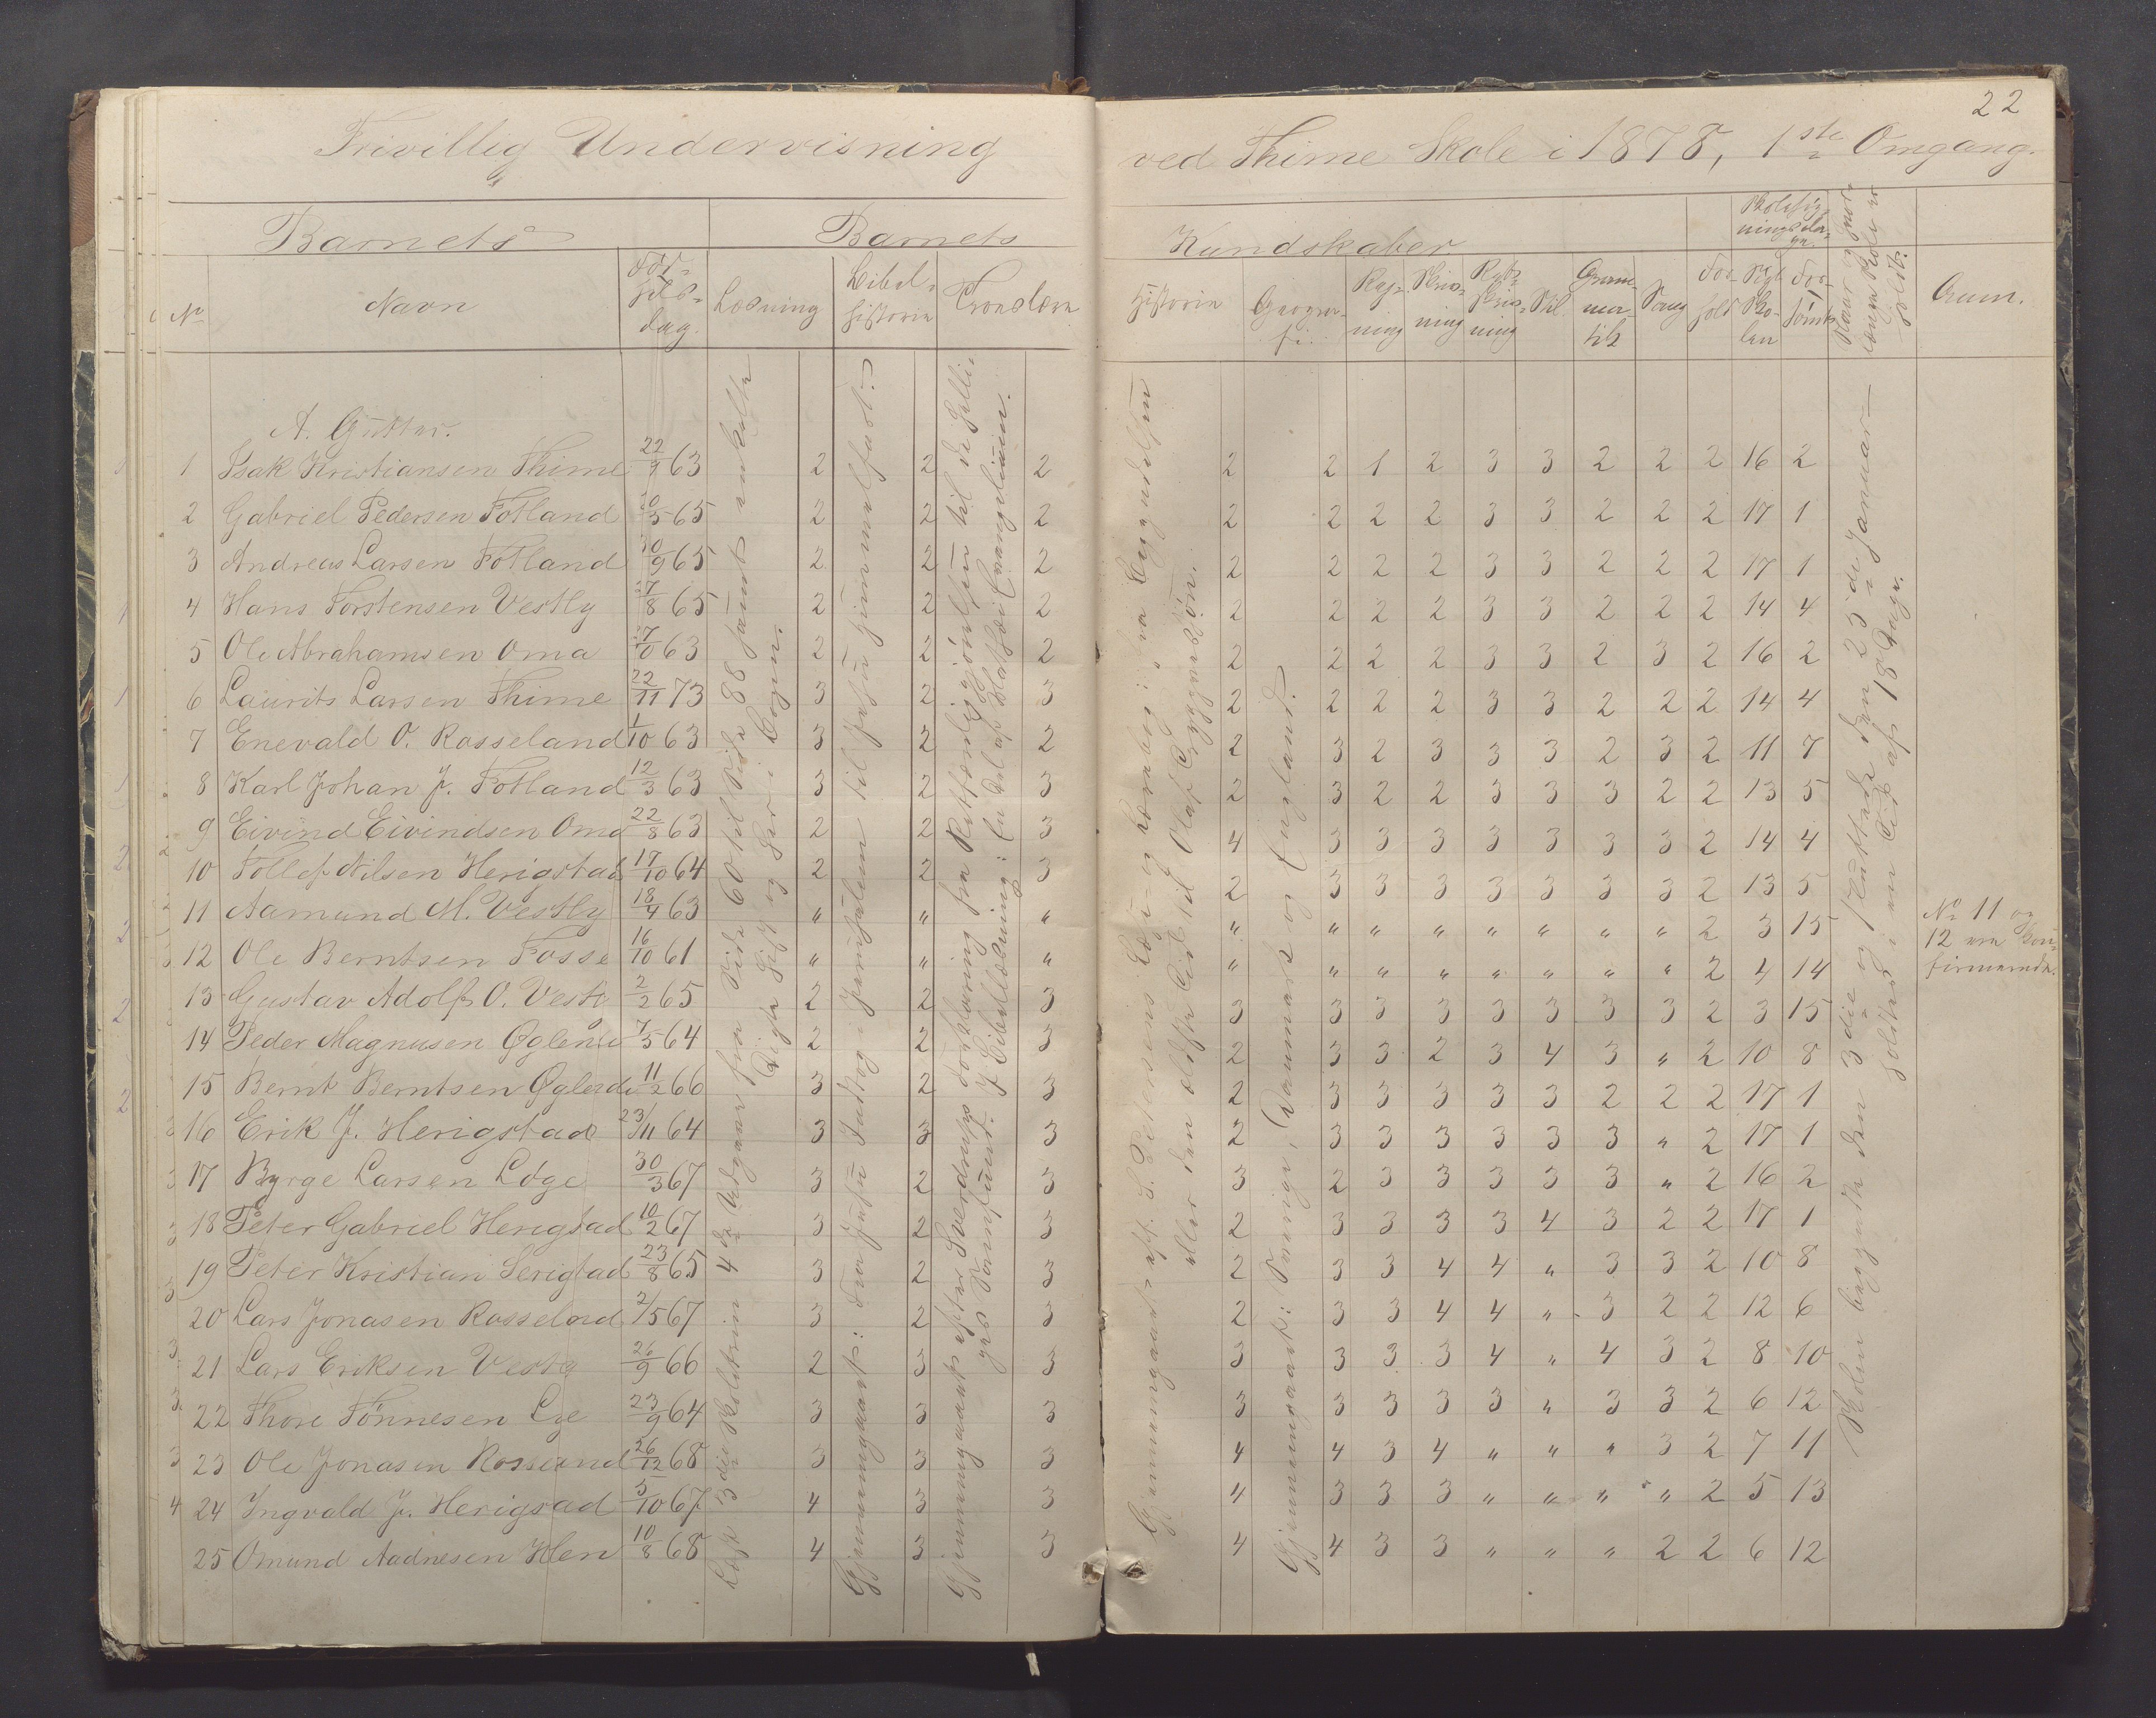 22
Frivillig Undervisning ved Thime Skole i 1878, 1ste Omgang.
Barnets Barnets Kundskaber
No Navn Fødselsdag. Læsning Bibelhistorie Troeslære Historie Geografi. Regning Skrivning Retskrivning Stil Grammatik Sang Forhold Skolesøgningsdage. Søgt Skolen Forsømt Naar og hvorlænge Skole er holdt. Anm.
A. Gutter.
1 Isak Kristiansen Thime 22/9 63 2 2 2 2 2 1 2 3 3 2 2 2 16 2
2 Gabriel Pedersen Fotland 20/5 65 2 2 2 2 2 2 2 3 3 2 2 2 17 1
3 Andreas Larsen Fotland 30/9 65 2 2 2 2 2 2 2 3 3 2 2 2 17 1
4 Hans Torstensen Vestly 7/8 65 2 2 2 2 2 2 2 3 3 2 2 2 14 4
5 Ole Abrahamsen Oma 63 2 2 2 2 2 2 2 3 3 2 3 2 16 2
6 Laurits Larsen Thime 22/11 73 3 2 3 2 2 2 2 3 3 2 2 2 14 4
7 Enevald O. Rosseland 1/10 63 3 2 2 2 3 2 3 3 3 2 3 2 11 7
8 Karl Johan J. Fotland 12/3 63 3 2 3 2 3 2 2 3 3 3 2 2 13 5
9 Eivind Eivindsen Oma 22/8 63 2 2 3 4 3 3 3 3 3 3 3 2 14 4
10 Tollef Nilsen Herigstad 17/10 64 2 2 3 2 3 3 3 3 3 3 3 2 13 5
11 Aamund M. Vestly 18/4 63 " " " " " " " " " " " 2 3 15 No 11 og
12 Ole Berntsen Fosse 16/10 61 " " " " " " " " " " " 2 4 14 12 ere konfirmerede.
13 Gustav Adolf O. Vestly 2/2 65 2 2 3 3 3 3 3 3 3 3 3 2 3 15
14 Peder Magnusen Øglend 7/5 64 2 2 3 2 3 3 2 3 4 3 " 2 10 8
15 Bernt Berntsen Øglend 11/2 66 3 2 3 2 3 3 3 3 3 2 2 2 17 1
16 Erik J. Herigstad 23/11 64 3 3 3 2 3 3 3 3 3 3 " 2 17 1
17 Byrge Larsen Løge 30/3 67 3 2 3 3 2 3 3 3 3 3 " 2 16 2
18 Peter Gabriel Herigstad 10/2 67 3 2 3 2 3 3 3 3 4 3 2 2 17 1
19 Peter Kristian Serigstad 23/8 65 3 2 3 2 3 3 4 4 " 3 3 2 10 8
20 Lars Jonasen Rosseland 2/5 67 3 2 3 2 3 3 4 4 " 3 2 2 12 6
21 Lars Eriksen Vestly 26/9 66 2 3 3 3 3 3 3 4 " 4 3 2 8 10
22 Thore Tønnesen Lye 23/9 64 3 3 3 3 3 3 3 3 " 3 3 2 6 12
23 Ole Jonasen Rosseland 26/12 68 3 3 3 4 4 3 4 " " " 3 2 7 11
24 Ingvald J. Herigstad 5/10 67 4 3 3 4 3 3 3 " " " " 2 5 13
25 Omund Aadnesen Hlen 10/8 68 4 3 3 4 4 3 3 " " " 2 2 6 12
Læst 3die Skoletrin 4de Udgave fra Side 60 til Side 88 samt enkelte
Digte hist og her i Bogen.
Gjennemgaaet: Fra Jesu Indtog i Jerusalem til Jesu himmelfart.
Gjennemgaaet efter Sverdrups Forklaring fra Retfærdiggjørelsen til de helliges Samfund. I Bibellæsning: En Del af Mathæi Evangelium.
Gjennemgaaet eft. S. Petersens Læse- og Lærebog: fra Begyndelsen
eller den ældste Tid til Olaf Tryggvesøn.
Gjennemgaaet: Sverige, Danmark og England.
Skolen begyndte den 3die og sluttede den 23de Januar —
holdtes i en Tid af 18 Dage.